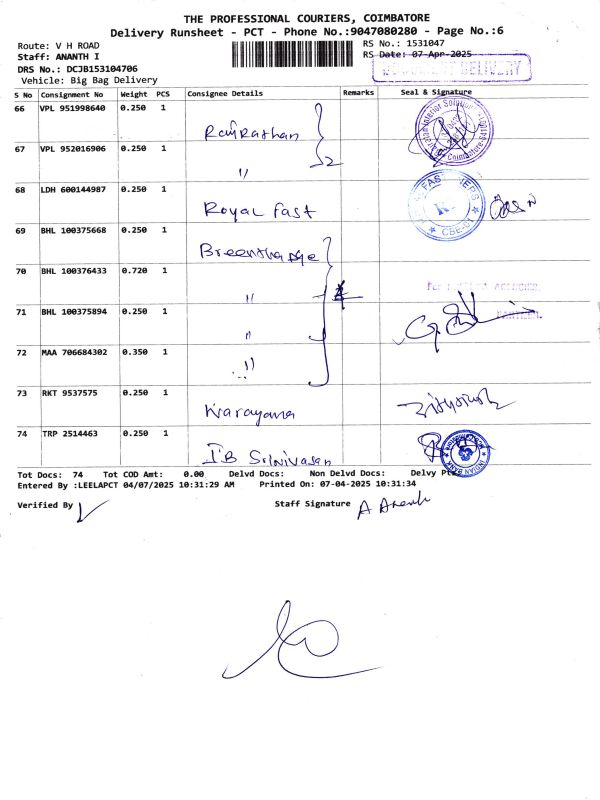 THE PROFESSIONAL COURIERS, COIMBATORE
Delivery Runsheet - PCT - Phone No.:9047080280 - Page No.:6
Route: V H ROAD
RS No.: 1531047
Staff: ANANTH I
RS Date: 07-Apr-2025
DRS No.: DCJB153104706
DELIVERY
Vehicle: Big Bag Delivery
S No Consignment No Weight PCS Consignee Details Remarks Seal & Signature
66 VPL 951998640 0.250 1
67 VPL 952016906 0.250 1 "
2
68 LDH 600144987 0.250 1 Royal Fast
69 BHL 100375668 0.250 1
70 BHL 100376433 0.720 1 "
4
71 BHL 100375894 0.250 1 "
72 MAA 706684302 0.350 1 "
73 RKT 9537575 0.250 1 Narayana
74 TRP 2514463 0.250 1 I.B Srinivasan
INDIAN BANK
Tot Docs: 74 Tot COD Amt: 0.00 Delvd Docs: Non Delvd Docs: Delvy Pt
Entered By :LEELAPCT 04/07/2025 10:31:29 AM Printed On: 07-04-2025 10:31:34
Verified By
Staff Signature A Ananth